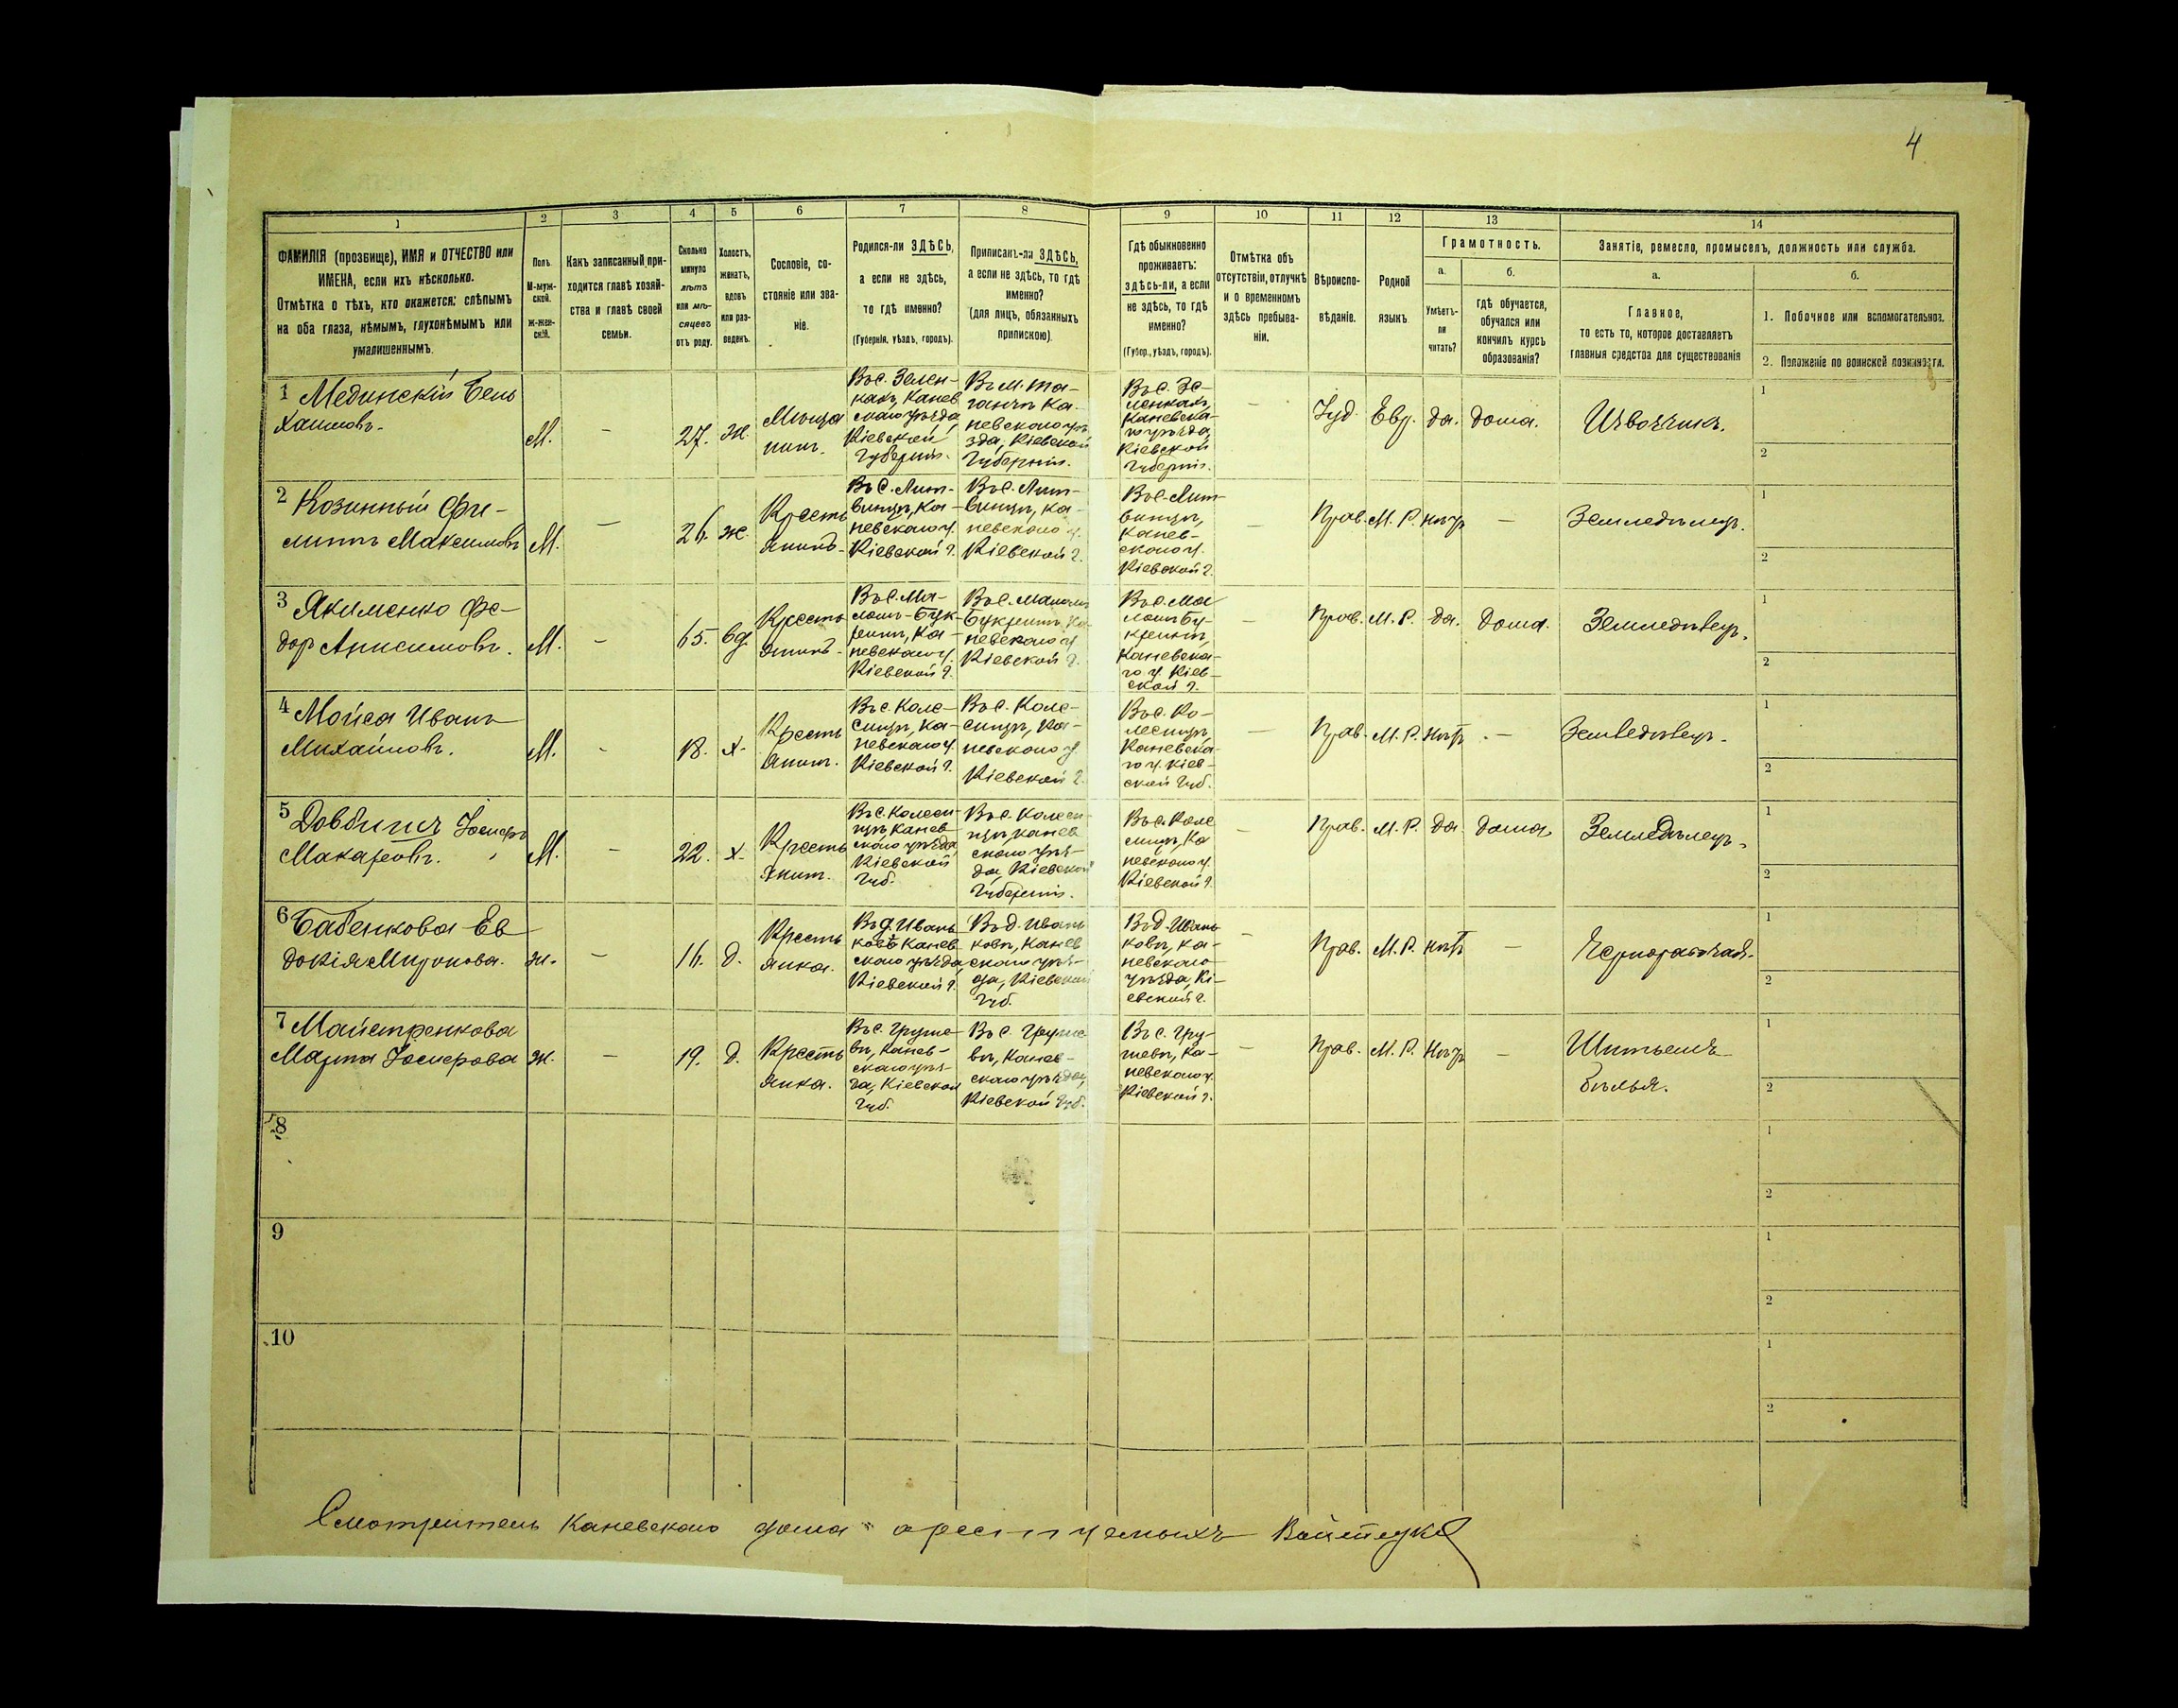 4
1 2 3 4 5 6 7 8 9 10 11 12 13 14
ФАМИЛІЯ (прозвище), ИМЯ и ОТЧЕСТВО или
ИМЕНА, если ихъ нѣсколько.
Отмѣтка о тѣхъ, кто окажется: слѣпымъ
на оба глаза, нѣмымъ, глухонѣмымъ или
умалишеннымъ.
Полъ.
М-муж-
ской.
Ж-жен-
скій.
Какъ записанный при-
ходится главѣ хозяй-
ства и главѣ своей
семьи.
Сколько
минуло
лѣтъ
или мѣ-
сяцевъ
отъ роду.
Холостъ,
женатъ,
вдовъ
или раз-
веденъ.
Сословіе, со-
стояніе или зва-
ніе.
Родился-ли ЗДѢСЬ,
а если не здѣсь,
то гдѣ именно?
(Губернія, уѣздъ, городъ).
Приписанъ-ли ЗДѢСЬ,
а если не здѣсь, то гдѣ
именно?
(для лицъ, обязанныхъ
припискою).
Гдѣ обыкновенно
проживаетъ:
здѣсь-ли, а если
не здѣсь, то гдѣ
именно?
(Губер., уѣздъ, городъ).
Отмѣтка объ
отсутствіи, отлучкѣ
и о временномъ
здѣсь пребыва-
ніи.
Вѣроиспо-
вѣданіе.
Родной
языкъ.
Грамотность.
а.
Умѣетъ-
ли
читать?
б.
гдѣ обучается,
обучался или
кончилъ курсъ
образованія?
Занятіе, ремесло, промыселъ, должность или служба.
а.
Главное,
то есть то, которое доставляетъ
главныя средства для существованія
б.
1. Побочное или вспомогательное.
2. Положеніе по воинской повинности.
1 Мединскій Бень
Хаимовъ.
М.
-
27.
ж.
Мѣща
нинъ.
Въ с. Зелен-
кахъ, Канев
скаго уѣзда,
Кіевской
Губерніи.
Въ м. Та-
ганчѣ Ка-
невскаго уѣ
зда, Кіевской
Губерніи.
Въ с. Зе-
ленкахъ,
Каневска-
го уѣзда,
Кіевской
Губерніи.
-
Іуд.
Евр.
да.
дома.
Извозчикъ.
1
2
2 Козинный Фи-
липпъ Максимовъ
М.
-
26.
ж.
Кресть
янинъ.
Въ с. Лит-
винцѣ, Ка-
невскаго у.
Кіевской г.
Въ с. Лит-
винцѣ, Ка-
невскаго у.
Кіевской г.
Въ с. Лит-
винцѣ,
Канев-
скаго у.
Кіевской г.
-
Прав.
М. Р.
нѣтъ
-
Земледѣлецъ.
1
2
3 Якименко Фе-
дор Анисимовъ.
М.
-
65.
вд.
Кресть
янинъ.
Въ с. Ма-
ломъ-Бук-
ринѣ, Ка-
невскаго у.
Кіевской г.
Въ с. Маломъ
Букринѣ, Ка-
невскаго у.
Кіевской г.
Въ с. Ма
ломъ Бу-
кринѣ,
Каневска-
го у. Кіев-
ской г.
-
Прав.
М. Р.
да.
дома.
Земледѣлецъ.
1
2
4 Мойса Иванъ
Михайловъ.
М.
-
18.
х.
Кресть
янинъ.
Въ с. Коле-
сищѣ, Ка-
невскаго у.
Кіевской г.
Въ с. Коле-
сищѣ, Ка-
невскаго у
Кіевской г.
Въ с. Ко-
лесищѣ,
Каневска-
го у. Кіев-
ской Губ.
-
Прав.
М. Р.
нѣтъ
-
Земледѣлецъ.
1
2
5 Довбишъ Іосифъ
Макаровъ.
М.
-
22.
х.
Кресть
янин.
Въ с. Колеси-
щѣ, Канев
скаго уѣзда,
Кіевской
Губ.
Въ с. Колеси-
щѣ, Канев
скаго уѣз-
да, Кіевской
Губерніи.
Въ с. Коле
сищѣ, Ка
невскаго у.
Кіевской г.
-
Прав.
М. Р.
да.
дома.
Земледѣлецъ.
1
2
6 Бабенкова Ев
докія Миронова.
ж.
-
16.
д.
Кресть
янка.
Въ д. Ивань
ковѣ Канев
скаго уѣзда,
Кіевской г.
Въ д. Ивань
ковѣ, Канев
скаго уѣз-
да, Кіевской
Губ.
Въ д. Ивань
ковѣ, Ка-
невскаго
уѣзда, Кі-
евской г.
-
Прав.
М. Р.
нѣтъ
-
Чернорабочая.
1
2
7 Майстренкова
Марта Іосифова
ж.
-
19.
д.
Кресть
янка.
Въ с. Груше
вѣ, Канев-
скаго уѣз-
да, Кіевской
Губ.
Въ с. Груше
вѣ, Канев-
скаго уѣзда,
Кіевской Губ.
Въ с. Гру-
шевѣ, Ка-
невскаго у.
Кіевской г.
-
Прав.
М. Р.
Нѣтъ
-
Шитьемъ
бѣлья.
1
2
8
1
2
9
1
2
10
1
2
Смотритель Каневскаго дома арестуемыхъ